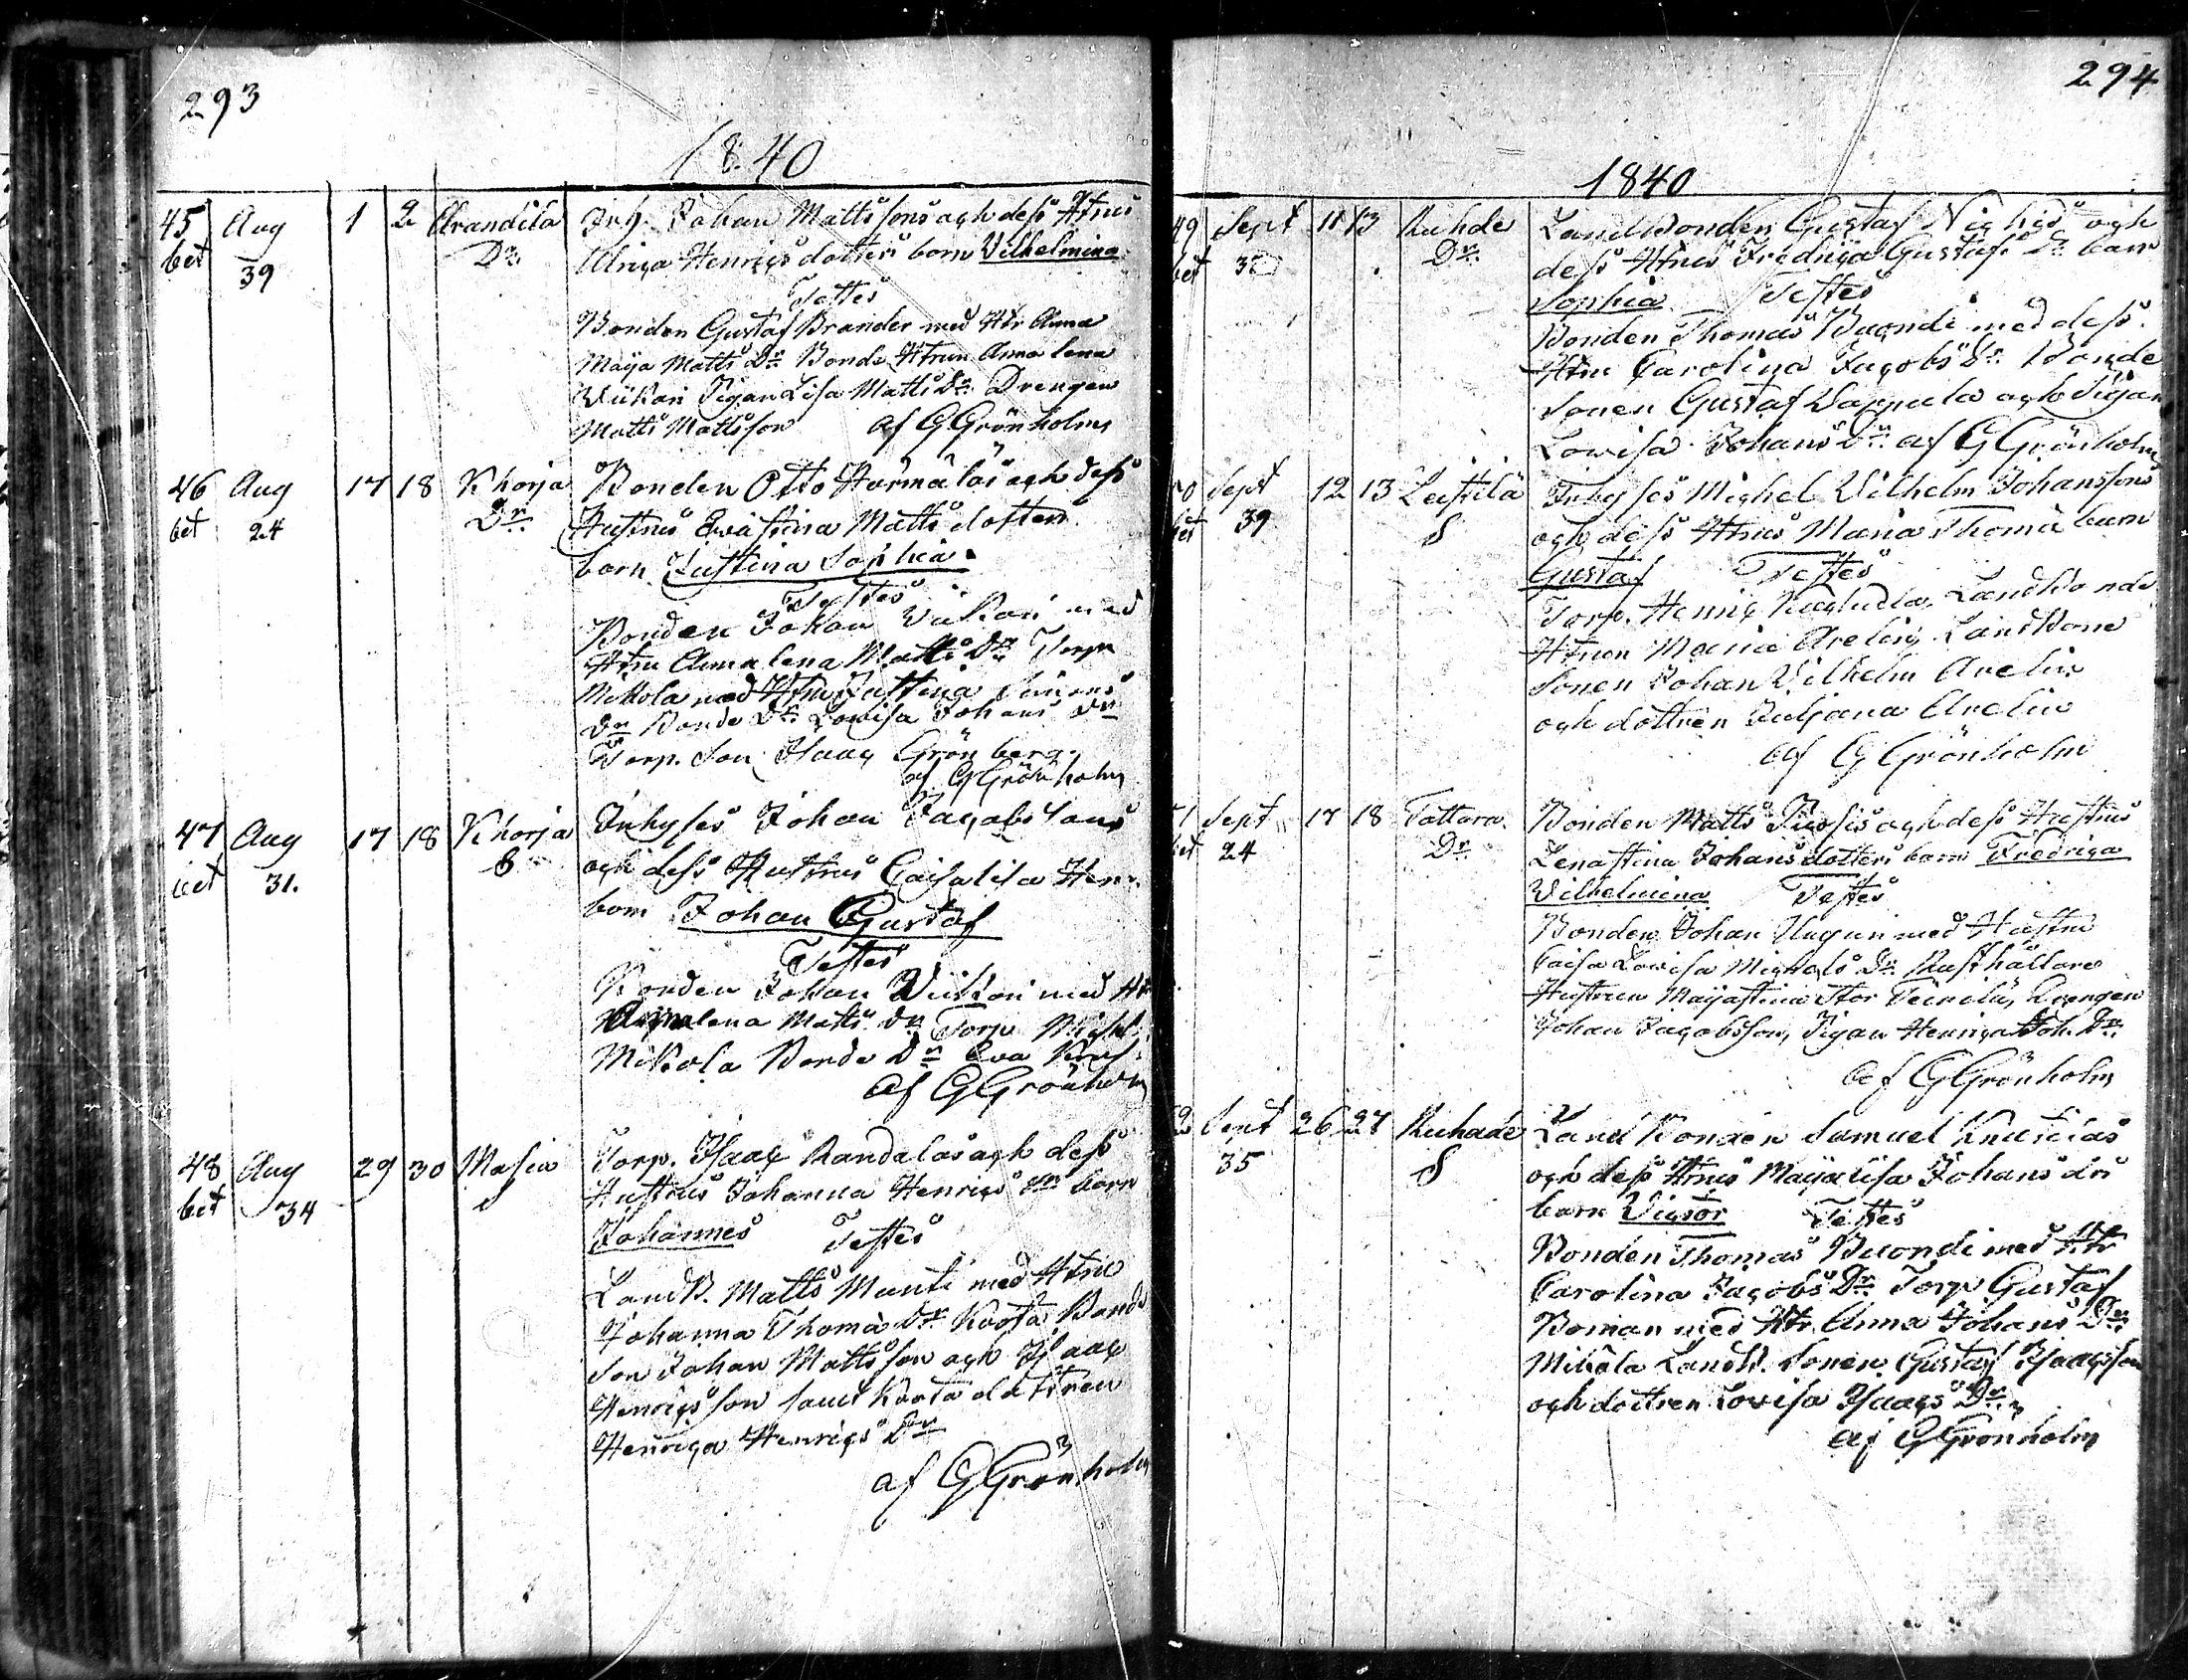 293
1840
45 Aug 1 2 Arandila Inh. Johan Matts sons och dess Htrus
bet 39 Dr. Ulrica Henrics dotters barn Vilhelmina
Testes
Bonden Gustaf Brander med Htr Anna
Maja Matts Dr. Bonde Htrun Anna lena
Wiikari Pigan Lisa Matts Dr. Drengen
Matts Mattsson af G Grönholm
46 Aug 17 18 Khorja Bonden Otto Härmäläs och dess
bet 24 Dr. Hustrus Evastina Matts dotters
barn Justina Sophia
Testes
Bonden Johan Wiikari med
Htru Annalena Matts Dr Torp
Mikola med Htru Justina Simons
Dr Bonde Dr. Lovisa Johans Dr
Torp. Son Isaac Grönberg
af G Grönholm
47 Aug 17 18 Khorja Inhyses Johan Jacobssons
bet 31. S och dess Hustrus Caisalisa Hen.
barn Johan Gustaf
Testes
Bonden Johan Wiikari med Ht
Annalena Matts Dr Torp Michl
Mikola Bonde Dr Eva
af G Grönholm
48 Aug 29 30 Masia Torp. Isaac Randalas och dess
bet 34 S Hustrus Johanna Henrics Dr barn
Johannes Testes
LandB. Matts Manti med Htru
Johanna Thoma Dr Kårta Bonde
Son Johan Matts son och Isaac
Henrics son samt Kårta dottren
Henrica Henrics Dr
af G Grönholm
294
1840
49 Sept 11 13 Ruhde Landbonden Gustaf Nighis och
bet Dr. dess Htrus Fredrica Gustafs Dr barn
Sophia Testes
Bonden Thomas Buondi med dess
Htru Carolina Jacobs Dr. Bonde
Sonen Gustaf Wappula och Pigan
Lovisa Johans Dr. af G Grönholm
50 Sept 12 13 Leistilä Inhyses Michel Wilhelm Johanssons
bet 39 S och dess Htrus Maria Thoma barn
Gustaf Testes
Torp. Henric LandBonde
Htrun Maria Arelin LandBonde
Sonen Johan Vilhelm Arelin
och dottren Juljana Arelin
af G Grönholm
51 Sept 17 18 Tattara Bonden Matts och dess Hustrus
bet 24 Dr. Lenastina Johans dotters barn Fredrica
Vilhelmina Testes
Bonden Johan Uugun med Hustru
Caisa Lovisa Michels Dr Rusthållare
Hustrun Majastina Stor Drengen
Johan Jacobsson, Pigan Henrica Joh. Dr.
af G Grönholm
52 Sept 26 27 Ruhade Land Bonden Samuel Knuutilas
35 S och dess Htrus Majalisa Johans drs
barn Victor Testes
Bonden Thomas Buondi med Htr
Carolina Jacobs Dr. Torp Gustaf
Boman med Htr Anna Johans Dr.
Mikola LandB. Sonen Gustaf Isaacsson
och dottren Lovisa Isaacs Dr.
af G Grönholm